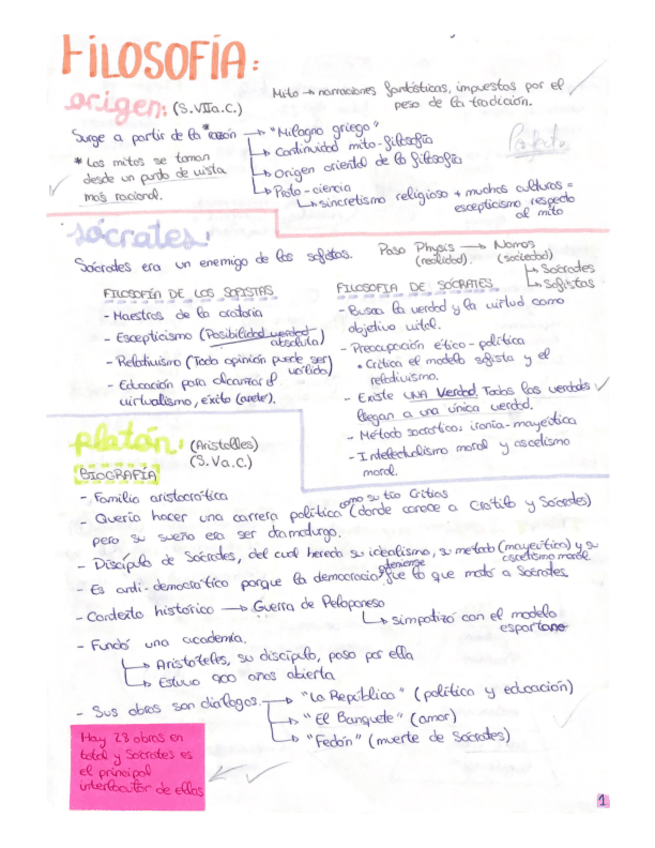 FILOSOFÍA:
origen: (S.VIIa.C.)
Mito → narraciones fantásticas, impuestas por el
peso de la tradición.
Surge a partir de la *razón → "Milagro griego"
→ Continuidad mito-filosofía
→ Origen oriental de la filosofía
→ Proto-ciencia
→ sincretismo religioso + muchas culturas =
escepticismo respecto
al mito
* Los mitos se toman
desde un punto de vista
más racional.
Perfecto
sócrates:
Sócrates era un enemigo de los sofistas.
Paso Physis → Nomos
(realidad). (sociedad)
→ Socrates
→ Sofistas
FILOSOFÍA DE LOS SOFISTAS
- Maestros de la oratoria
- Escepticismo (Posibilidad verdad
absoluta)
- Relativismo (Toda opinión puede ser
válida)
- Educación para alcanzar el
virtualismo, éxito (areté).
FILOSOFIA DE SÓCRATES
- Busca la verdad y la virtud como
objetivo vital.
- Preocupación ético-política
• Critica el modelo sofista y el
relativismo.
- Existe UNA Verdad. Todas las verdades
llegan a una única verdad.
- Método socrático: ironía-mayeútica
- Intelectualismo moral y ascetismo
moral.
platón: (Aristolles)
(S.Va.C.)
BIOGRAFÍA
- Familia aristocrática
- Quería hacer una carrera política como su tío Critias (donde conoce a Cratilo y Socedes)
pero su sueño era ser dramaturgo.
- Discípulo de Socrates, del cual hereda su idealismo, su metodo (mayeútica) y su
ascetismo moral
- Es anti-democrático porque la democracia ateniense fue la que mató a Sócrates.
- Contexto histórico → Guerra de Peloponeso
→ simpatizó con el modelo
espartano
- Fundó una academia.
→ Aristóteles, su discípulo, paso por ella
→ Estuvo 900 años abierta
- Sus obras son dialogos. → "La República" (política y educación)
→ "El Banquete" (amor)
→ "Fedón" (muerte de Sócrates)
Hay 28 obras en
total y Socrates es
el principal
interlocutor de ellas
1